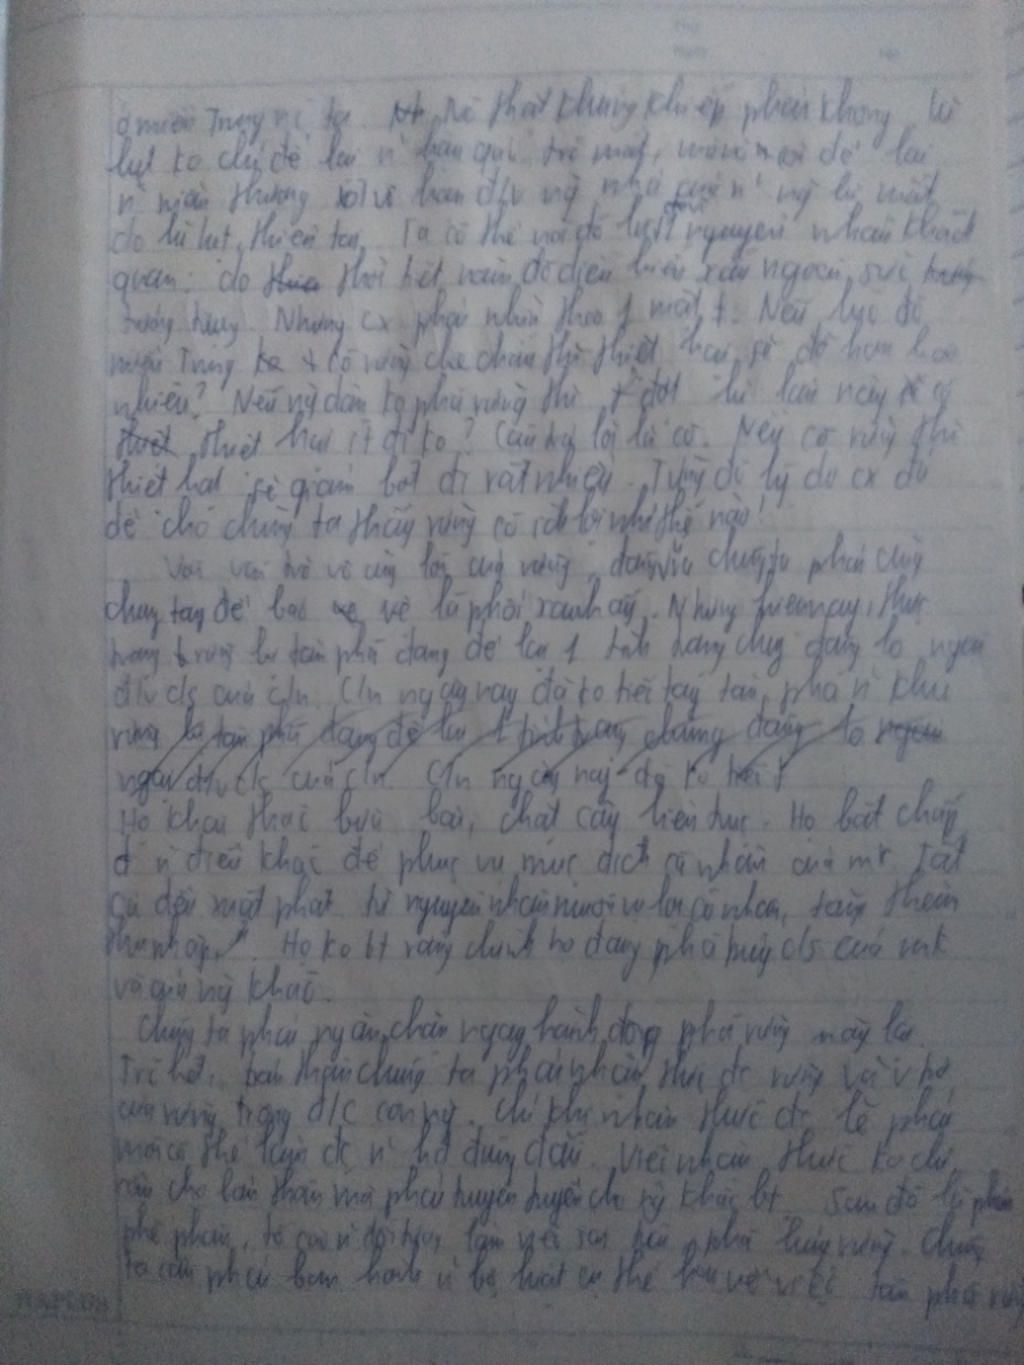 ở miền Trung nc ta. Nó thật khủng khiếp phải không
lụt ko chỉ để lại n hậu quả trc mắt, mà nó còn để lại
n niềm thương xót vô hạn đ/v ng nhà của n ng bị mất
do lũ lụt, thiên tai. Ta có thể nói đó là nguyên nhân khách
quan: do thời tiết năm đó diễn biến xấu ngoài sức
tưởng tượng. Nhưng cx phải nhìn theo 1 mặt ≠. Nếu lúc đó
miền Trung có rừng che chắn thì thiệt hại sẽ đỡ hơn bao
nhiêu? Nếu ng dân ko phá rừng thì đợt lũ lần này có
thiệt hại ít đi ko? Câu trả lời là có. Nếu có rừng thì
thiệt hại sẽ giảm bớt đi rất nhiều. Từng đó lý do cx đủ
để cho chúng ta thấy rừng có ích lợi như thế nào!
Với vai trò vô cùng lớn của rừng, chúng ta phải cùng
chung tay để bảo vệ lá phổi xanh ấy. Nhưng hiện nay, thực
trạng rừng bị tàn phá đang để lại 1 tình trạng đáng lo ngại
đ/v c/s của c/n. C/n ngày nay đã ko tiếc tay tàn phá n khu
rừng bị tàn phá đang để lại 1 tình trạng đáng lo
ngại đ/v c/s của c/n. C/n ngày nay đã ko tiếc t
Họ khai thác bừa bãi, chặt cây liên tục. Họ bất chấp
n điều khác để phục vụ mục đích cá nhân của mk. Tất
cả đều xuất phát từ nguyên nhân lợi cá nhân, tăng thêm
thu nhập. Họ ko bt rằng chính họ đang phá hủy c/s của mk
và của ng khác.
Chúng ta phải ngăn chặn ngay hành động phá rừng này lại.
Trc hết, bản thân chúng ta phải nhận thức đc rừng và v trò
của rừng trong đ/s con ng. Chỉ khi nhận thức đc lẽ phải
mới có thể làm đc n hđ đúng đắn. Việc nhận thức ko chỉ
cần cho bản thân mà phải tuyên truyền cho ng khác bt. Sau đó là phải
phê phán, tố cáo n đối tượng làm việc phá hủy rừng. Chúng
ta cần phải ban hành n bộ luật cụ thể về việc tàn phá rừng